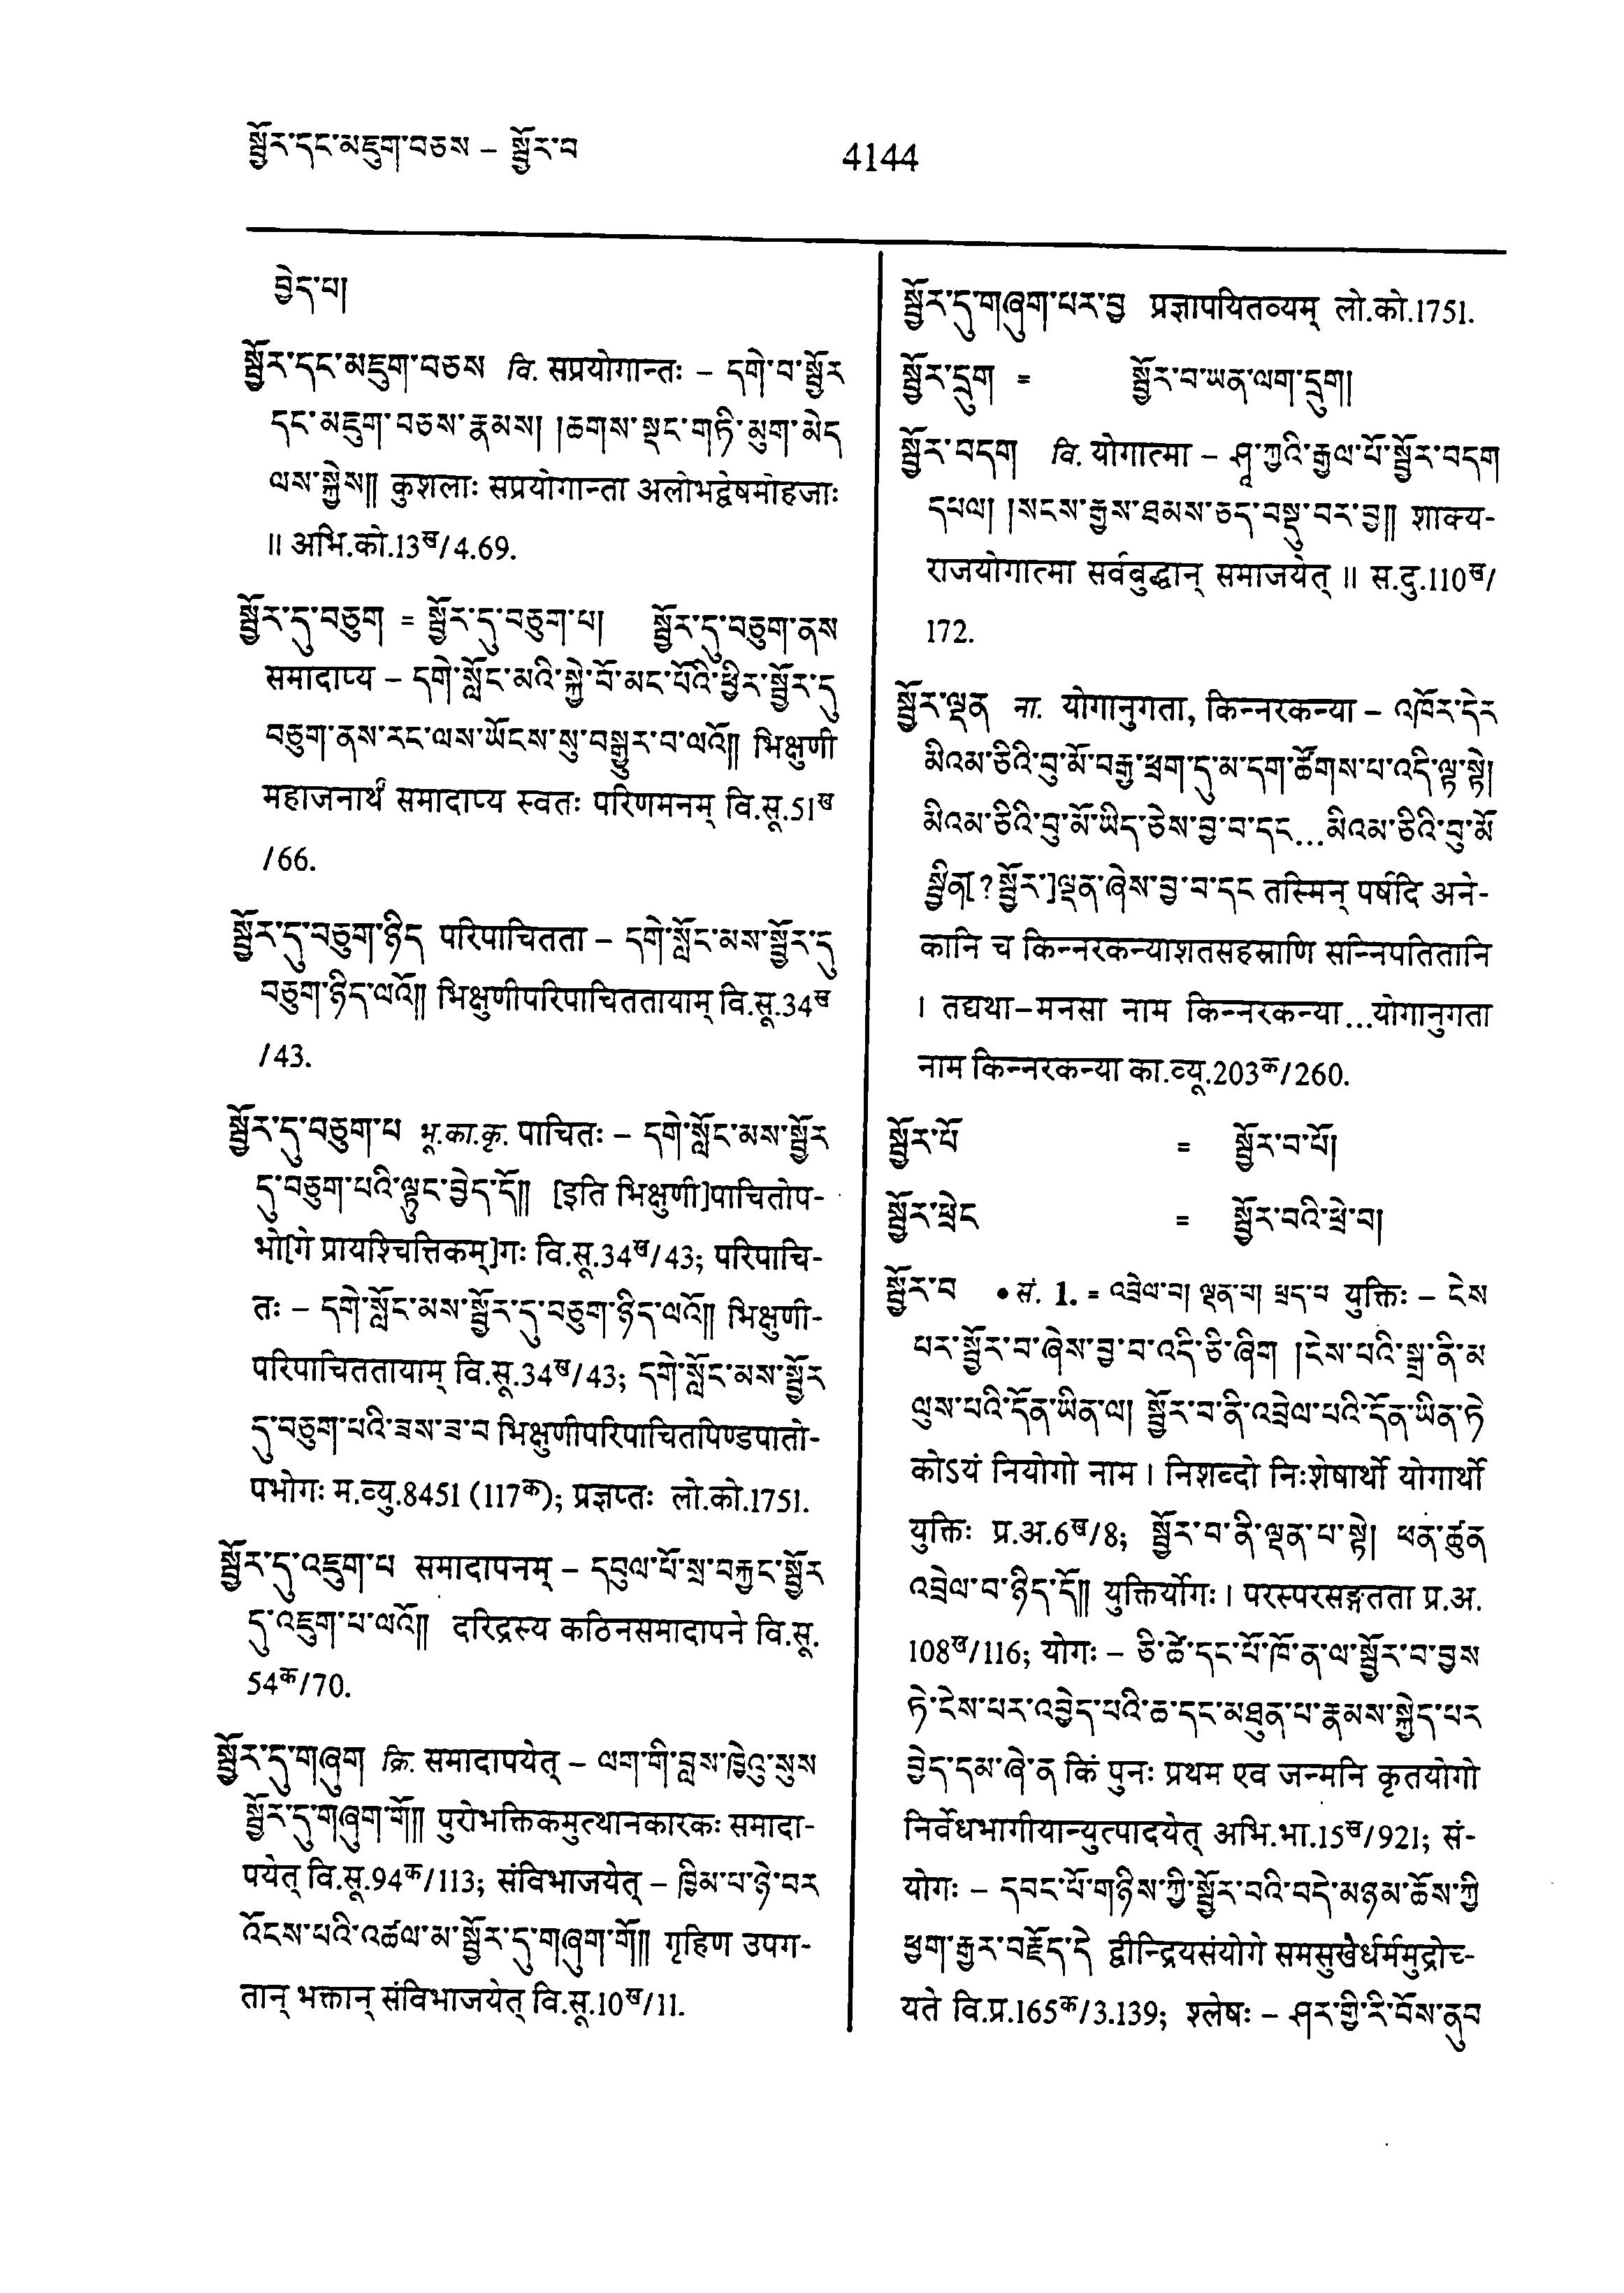 སྦྱོར་དང་མཇུག་བཅས – སྦྱོར་བ
4144
བྱེད་པ།
སྦྱོར་དང་མཇུག་བཅས वि. सप्रयोगान्तः – དགེ་བ་སྦྱོར
དང་མཇུག་བཅས་རྣམས། །ཆགས་སྡང་གཏི་མུག་མེད
ལས་སྐྱེས།། कुशलाः सप्रयोगान्ता अलोभद्वेषमोहजाः
॥ अभि.को.13ख/4.69.
སྦྱོར་དུ་བཅུག = སྦྱོར་དུ་བཅུག་པ། སྦྱོར་དུ་བཅུག་ནས
समादाप्य – དགེ་སློང་མའི་སྐྱེ་བོ་མང་པོའི་ཕྱིར་སྦྱོར་དུ
བཅུག་ནས་རང་ལས་ཡོངས་སུ་བསྒྱུར་བ་ལའོ།། भिक्षुणी
महाजनार्थं समादाप्य स्वतः परिणमनम् वि.सू.51ख
/66.
སྦྱོར་དུ་བཅུག་ཉིད परिपाचितता – དགེ་སློང་མས་སྦྱོར་དུ
བཅུག་ཉིད་ལའོ།། भिक्षुणीपरिपाचिततायाम् वि.सू.34ख
/43.
སྦྱོར་དུ་བཅུག་པ भू.का.कृ. पाचितः – དགེ་སློང་མས་སྦྱོར
དུ་བཅུག་པའི་ལྟུང་བྱེད་དོ།། [इति भिक्षुणी]पाचितोप-
भो[गे प्रायश्चित्तिकम्]गः वि.सू.34ख/43; परिपाचि-
तः – དགེ་སློང་མས་སྦྱོར་དུ་བཅུག་ཉིད་ལའོ།། भिक्षुणी-
परिपाचिततायाम् वि.सू.34ख/43; དགེ་སློང་མས་སྦྱོར
དུ་བཅུག་པའི་ཟས་ཟ་བ भिक्षुणीपरिपाचितपिण्डपातो-
पभोगः म.व्यु.8451 (117क); प्रज्ञप्तः लो.को.1751.
སྦྱོར་དུ་འཇུག་པ समादापनम् – དབུལ་པོ་སྲ་བརྐྱང་སྦྱོར
དུ་འཇུག་པ་ལའོ།། दरिद्रस्य कठिनसमादापने वि.सू.
54क/70.
སྦྱོར་དུ་གཞུག क्रि. समादापयेत् – ལག་གི་བླས་ཁྱེའུ་སུས
སྦྱོར་དུ་གཞུག་གོ།། पुरोभक्तिकमुत्थानकारकः समादा-
पयेत् वि.सू.94क/113; संविभाजयेत् – ཁྱིམ་པ་ཉེ་བར
འོངས་པའི་འཚལ་མ་སྦྱོར་དུ་གཞུག་གོ།། गृहिण उपग-
तान् भक्तान् संविभाजयेत् वि.सू.10ख/11.
སྦྱོར་དུ་གཞུག་པར་བྱ प्रज्ञापयितव्यम् लो.को.1751.
སྦྱོར་དྲུག = སྦྱོར་བ་ཡན་ལག་དྲུག།
སྦྱོར་བདག वि. योगात्मा – ཤཱ་ཀྱའི་རྒྱལ་པོ་སྦྱོར་བདག
དཔལ། །སངས་རྒྱས་ཐམས་ཅད་བསྡུ་བར་བྱ།། शाक्य-
राजयोगात्मा सर्वबुद्धान् समाजयेत् ॥ स.दु.110ख/
172.
སྦྱོར་ལྡན ना. योगानुगता, किन्नरकन्या – འཁོར་དེར
མིའམ་ཅིའི་བུ་མོ་བརྒྱ་ཕྲག་དུ་མ་དག་ཚོགས་པ་འདི་ལྟ་སྟེ།
མིའམ་ཅིའི་བུ་མོ་ཡིད་ཅེས་བྱ་བ་དང...མིའམ་ཅིའི་བུ་མོ
སྦྱིན[?སྦྱོར་]ལྡན་ཞེས་བྱ་བ་དང तस्मिन् पर्षदि अने-
कानि च किन्नरकन्याशतसहस्राणि सन्निपतितानि
। तद्यथा–मनसा नाम किन्नरकन्या...योगानुगता
नाम किन्नरकन्या का.व्यू.203क/260.
སྦྱོར་པོ = སྦྱོར་བ་པོ།
སྦྱོར་ཕྲེང = སྦྱོར་བའི་ཕྲེ་བ།
སྦྱོར་བ • सं. 1. = འབྲེལ་བ། ལྡན་པ། ཕྲད་པ युक्तिः – ངེས
པར་སྦྱོར་བ་ཞེས་བྱ་བ་འདི་ཅི་ཞིག །ངེས་པའི་སྒྲ་ནི་མ
ལུས་པའི་དོན་ཡིན་ལ། སྦྱོར་བ་ནི་འབྲེལ་པའི་དོན་ཡིན་ཏེ
कोऽयं नियोगो नाम । निशब्दो निःशेषार्थो योगार्थो
युक्तिः प्र.अ.6ख/8; སྦྱོར་བ་ནི་ལྡན་པ་སྟེ། ཕན་ཚུན
འབྲེལ་བ་ཉིད་དོ།། युक्तिर्योगः । परस्परसङ्गतता प्र.अ.
108ख/116; योगः – ཅི་ཚེ་དང་པོ་ཁོ་ན་ལ་སྦྱོར་བ་བྱས
ཏེ་ངེས་པར་འབྱེད་པའི་ཆ་དང་མཐུན་པ་རྣམས་སྐྱེད་པར
བྱེད་དམ་ཞེ་ན किं पुनः प्रथम एव जन्मनि कृतयोगो
निर्वेधभागीयान्युत्पादयेत् अभि.भा.15ख/921; सं-
योगः – དབང་པོ་གཉིས་ཀྱི་སྦྱོར་བའི་བདེ་མཉམ་ཆོས་ཀྱི
ཕྱག་རྒྱར་བརྗོད་དེ द्वीन्द्रियसंयोगे समसुखैर्धर्ममुद्रोच्-
यते वि.प्र.165क/3.139; श्लेषः – ཤར་གྱི་རི་བོས་ནུབ